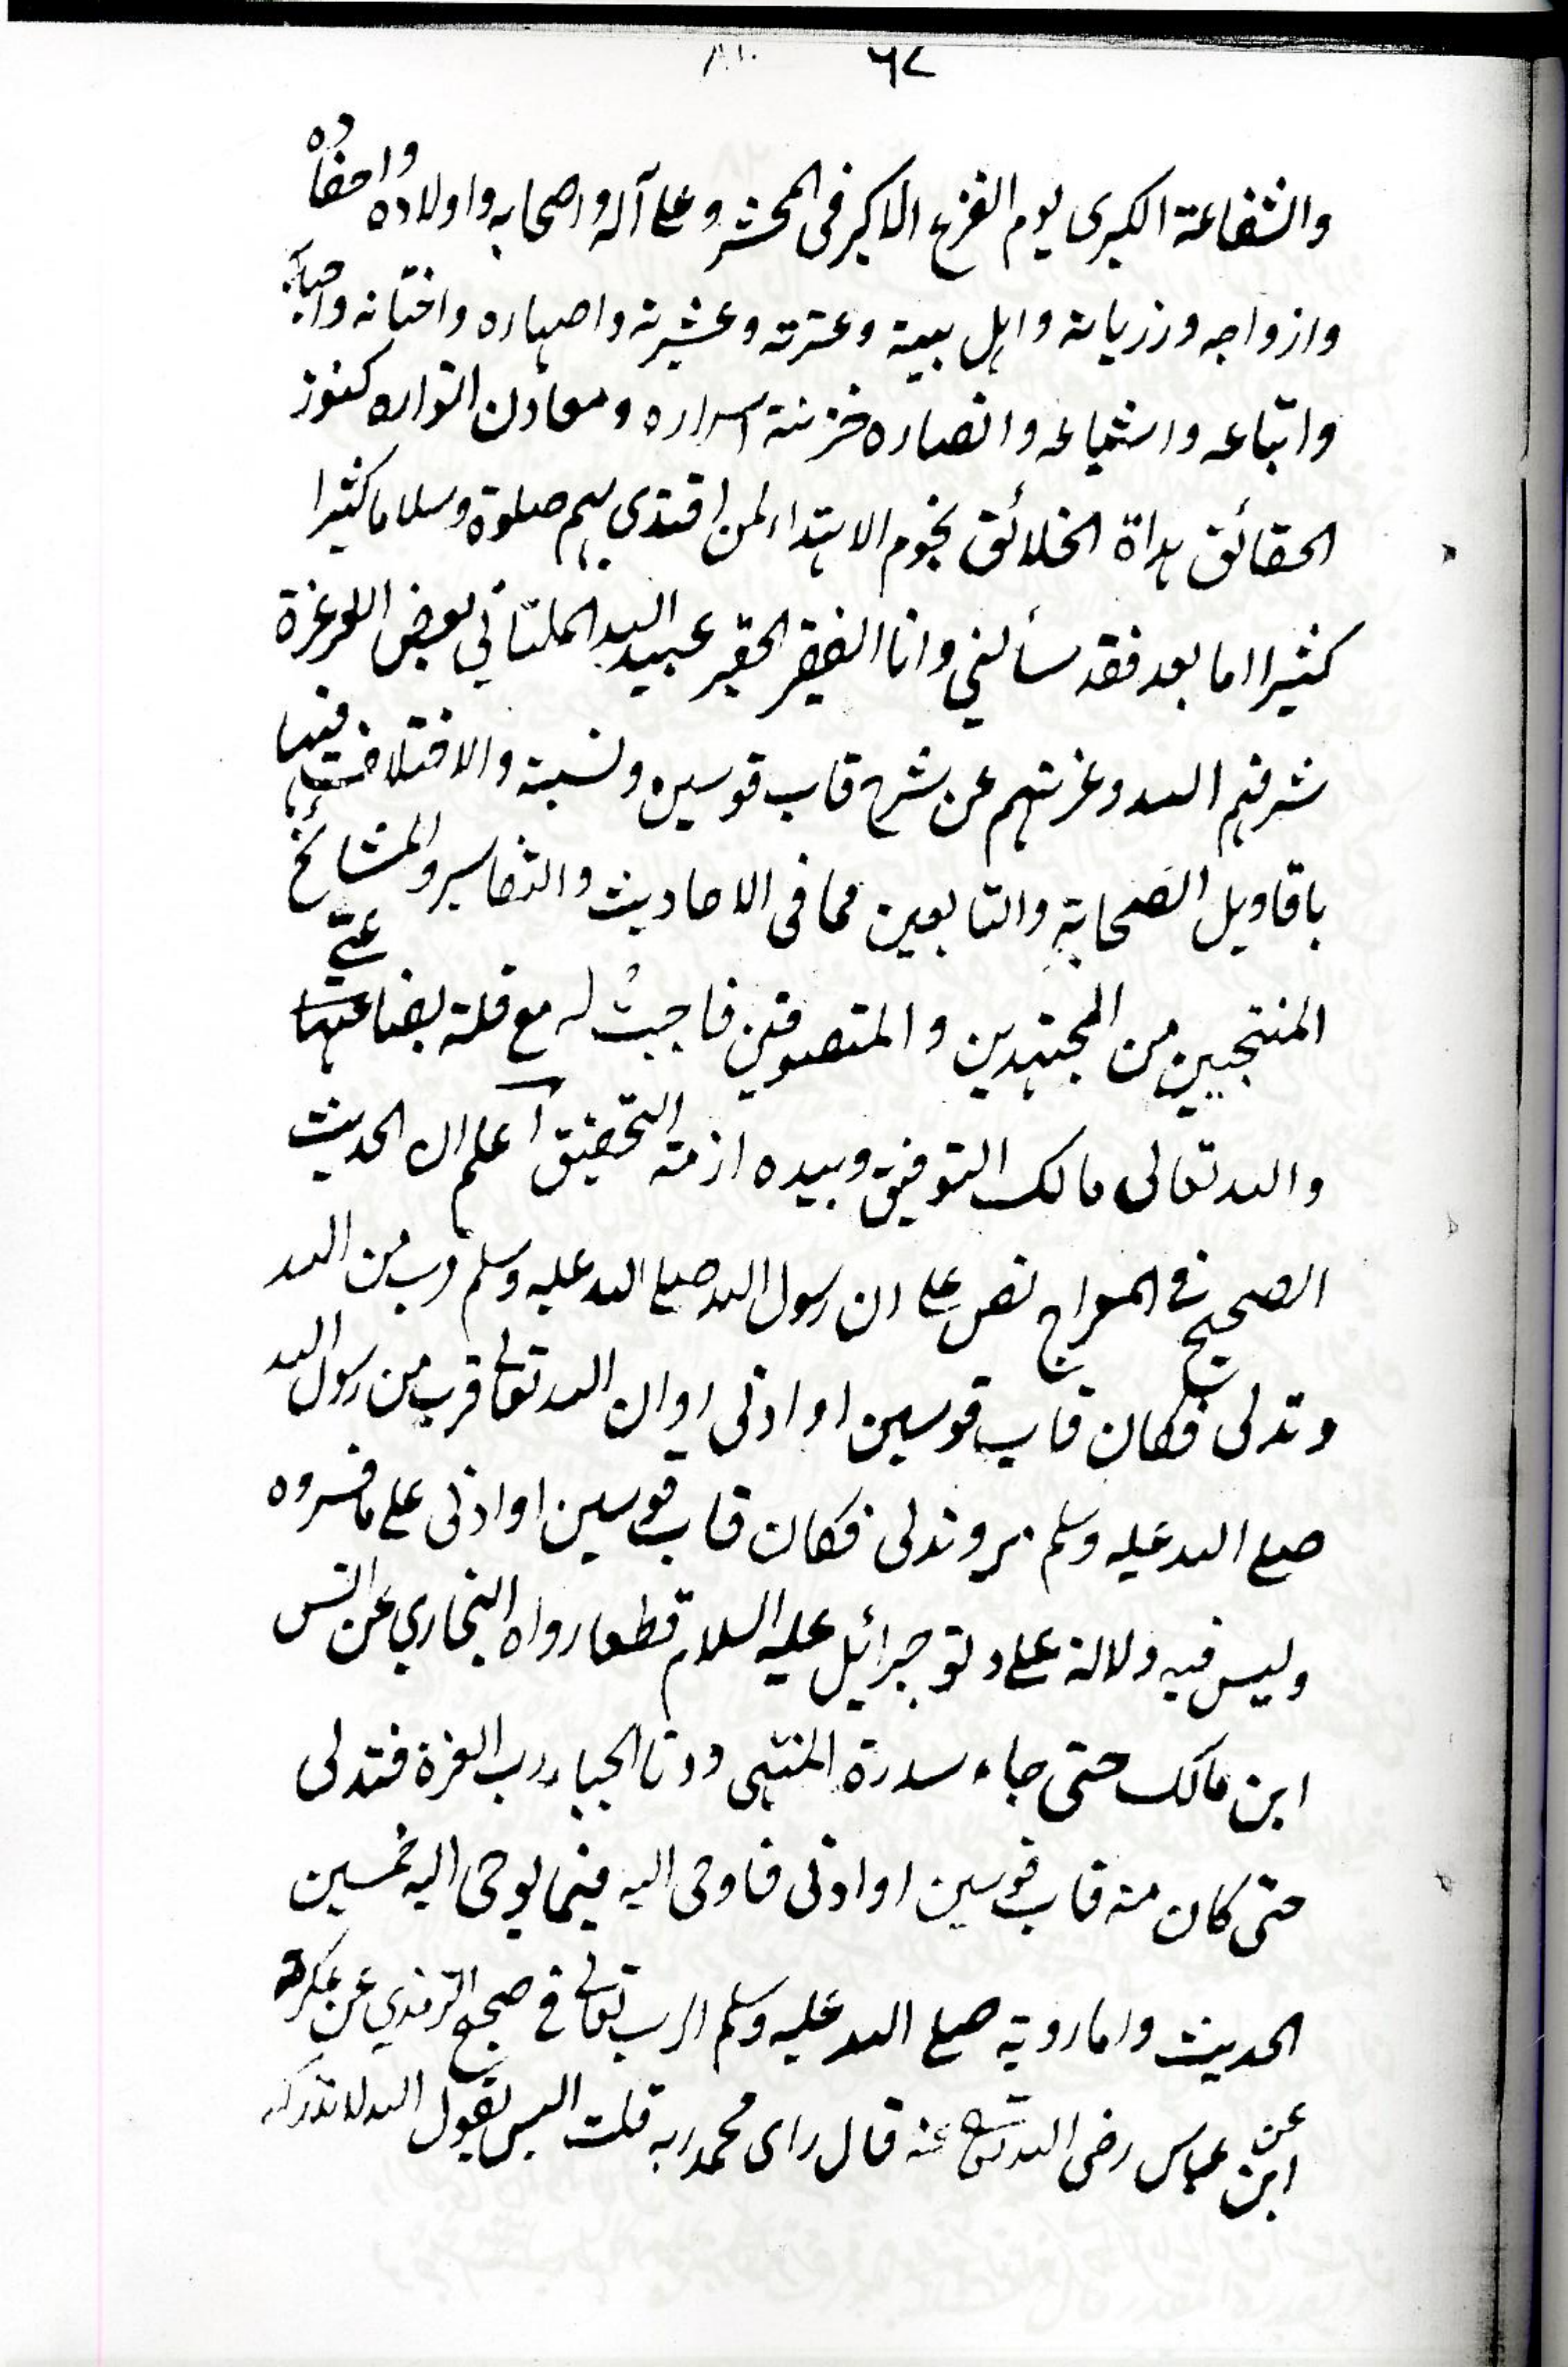 ٦٧
والشفاعة الكبرى يوم الفزع الاكبر فى المحشر وعلى آله واصحابه واولاده واحفاده
وازواجه وذرياته واهل بيته وعترته وعشيرته واصهاره واختانه واحبابه
واتباعه واشياعه وانصاره خزنة اسراره ومعادن انواره كنوز
الحقائق هداة الخلائق نجوم الاهتداء لمن اقتدى بهم صلوة وسلاما كثيرا
كثيرا اما بعد فقد سألني وانا الفقير الحقير عبيد الله الملتاني بعض الاعزة
شرفهم الله وعزتهم عن شرح قاب قوسين ونسبته والاختلاف فيها
باقاويل الصحابة والتابعين مما فى الاحاديث والتفاسير والمشائخ
المنتجبين من المجتهدين والمتصوفين فاجبتُ له مع قلة بضاعتي
والله تعالى مالك التوفيق وبيده ازمة التحقيق اعلم ان الحديث
الصحيح في المعراج نص على ان رسول الله صلى الله عليه وسلم قرب من الله
وتدلى فكان قاب قوسين او ادنى او ان الله تعالى قرب من رسول الله
صلى الله عليه وسلم وتدلى فكان قاب قوسين او ادنى على ما فسروه
وليس فيه دلالة على دنو جبرائيل عليه السلام قطعا رواه البخاري عن انس
ابن مالك حتى جاء سدرة المنتهى ودنا الجبار رب العزة فتدلى
حتى كان منه قاب قوسين او ادنى فاوحى اليه فيما يوحى اليه خمسين
الحديث واما رويته صلى الله عليه وسلم الرب تعالى في صحيح الترمذي عن عكرمة
عن ابن عباس رضى الله تعالى عنه قال راى محمد ربه قلت اليس يقول الله لا تدركه